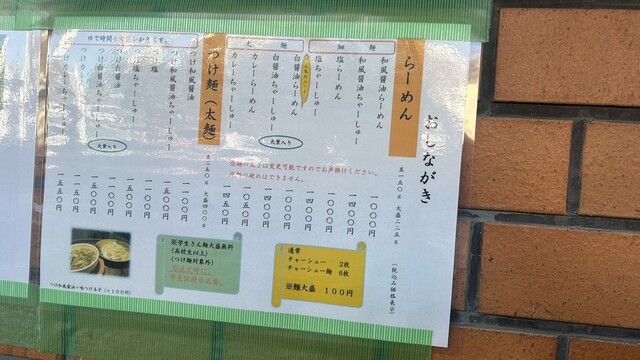 おしながき
(税込み価格表示)
らーめん
並一五〇g 大盛二二五g
細麺
和風醤油らーめん 一〇〇〇円
和風醤油ちゃーしゅー 一四〇〇円
塩らーめん 一〇〇〇円
塩ちゃーしゅー 一四〇〇円
太麺
白醤油らーめん 一〇〇〇円
白醤油ちゃーしゅー 一四〇〇円
カレーらーめん
カレーちゃーしゅー
大葉入り
一四五〇円
※麺の太さは変更可能ですのでお声掛けください。
※麺の硬めはできません。
つけ麺(太麺)
並二五〇g 大盛四〇〇g
ゆで時間
つけ和風醤油 一一〇〇円
つけ和風醤油ちゃーしゅー 一五〇〇円
つけ塩 一一〇〇円
つけ塩ちゃーしゅー 一五〇〇円
つけ白醤油 一一〇〇円
つけ白醤油ちゃーしゅー 一五〇〇円
大葉入り
一一五〇円
一五五〇円
通常
チャーシュー 2枚
チャーシュー麺 6枚
※麺大盛 100円
※学生さん麺大盛無料
(高校生以上)
(つけ麺対象外)
※注文時に
学生証提示必要。
つけ和風醤油+味つけ玉子(+100円)